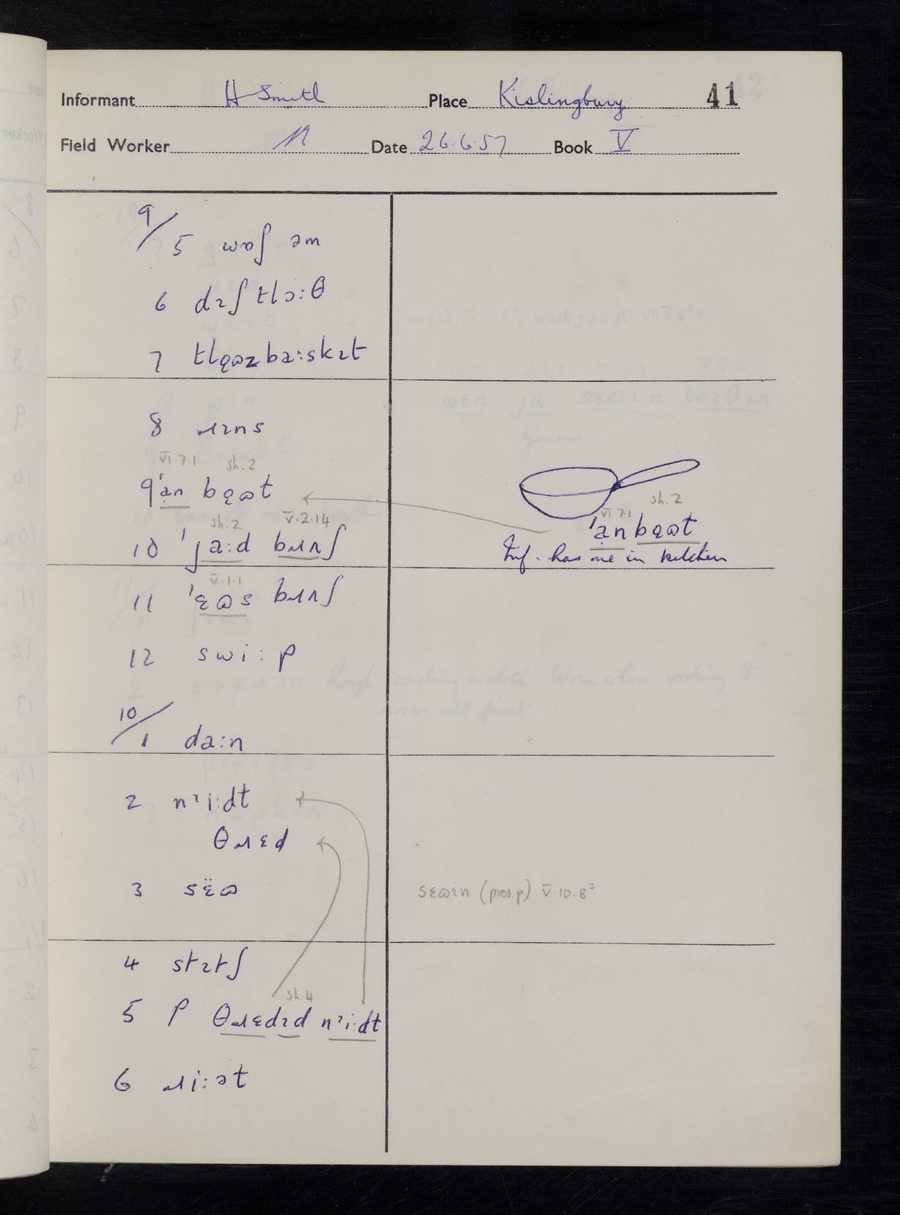 Informant H Smith Place Kislingbury 41
Field Worker Date 26.6.57 Book V
9/5 wɒʃ əm
6 dɪʃ tlɔ:θ
7 tlɛ̨ɷz ba:skɪt
8 ɹɪns
VI.7.1 sh.2
9 'an bɛ̨ɷt
sh.2 V.2.14
10 'ja:d bɹʌʃ
V.1.1
11 'ɛ̨ɷs bɹʌʃ
12 swi:p
10/1 da:n
2 nᵊi:dt
θɹɛd
3 sɛ̈ɷ
4 stɪtʃ
sh.4
5 p θɹɛdɪd nᵊi:dt
6 ɹi:ət
sh.2
VI 7.1
'an bɛ̨ɷt
Inf. has one in kitchen
sɛɷɪn (pres.p) V.10.8³